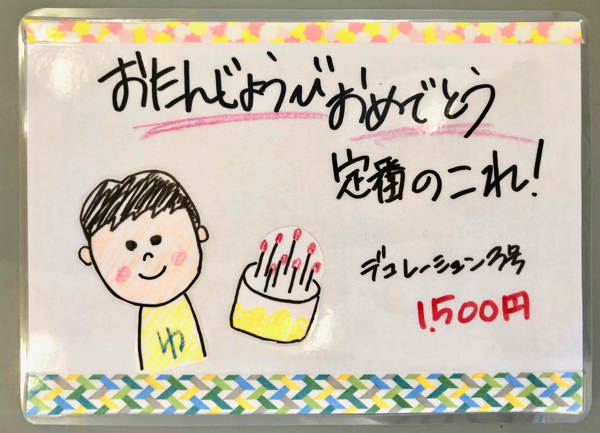 おたんじょうび おめでとう
定番のこれ!
デコレーション3号
1,500円
ゆ